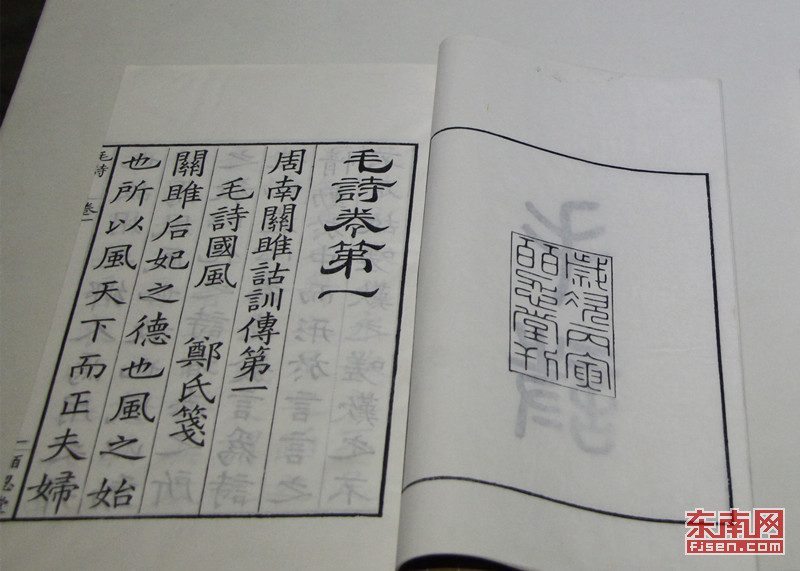 歲次丙寅
百忍堂刊
毛詩卷第一
周南關雎詁訓傳第一
毛詩國風 鄭氏箋
關雎后妃之德也風之始
也所以風天下而正夫婦
毛詩 卷一 一 百忍堂
东南网
fjsen.com